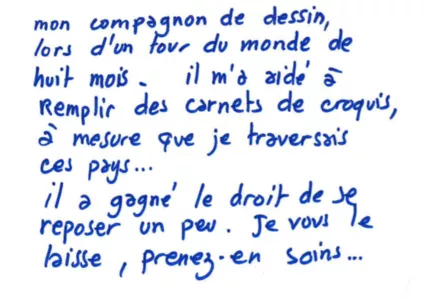 mon compagnon de dessin,
lors d'un tour du monde de
huit mois. il m'a aidé à
Remplir des carnets de croquis,
à mesure que je traversais
ces pays...
il a gagné le droit de se
reposer un peu. Je vous le
laisse, prenez-en soins...